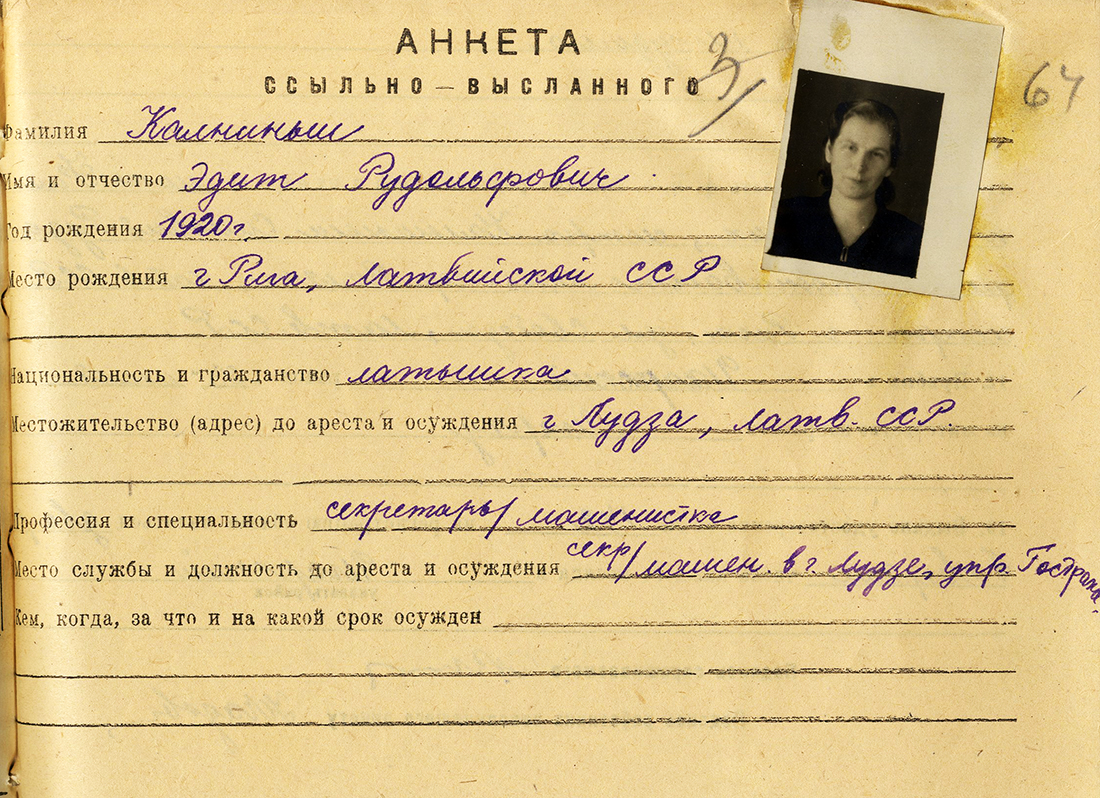 АНКЕТА
ССЫЛЬНО — ВЫСЛАННОГО
3/
64
Фамилия Калниньш
Имя и отчество Эдит Рудольфович
Год рождения 1920 г.
Место рождения г Рига, Латвийской ССР
Национальность и гражданство латышка
Местожительство (адрес) до ареста и осуждения г Лудза, Латв. ССР.
Профессия и специальность секретарь/машенистка
Место службы и должность до ареста и осуждения секр/машен. в г Лудзе, упр. Гостраха.
Кем, когда, за что и на какой срок осужден